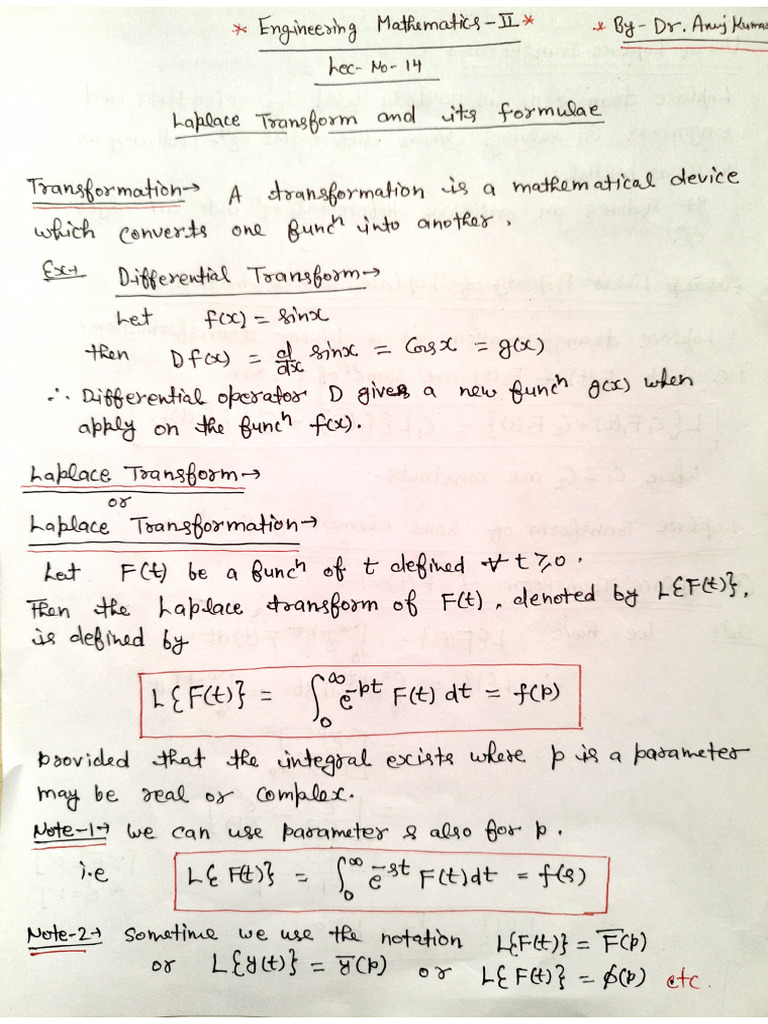 * Engineering Mathematics-II *
* By- Dr. Anuj Kumar
Lec-No-14
Laplace Transform and its formulae
Transformation→ A transformation is a mathematical device
which converts one funcⁿ into another.
Ex→ Differential Transform→
Let f(x) = sinx
then Df(x) = d/dx sinx = Cosx = g(x)
∴ Differential operator D gives a new funcⁿ g(x) when
apply on the funcⁿ f(x).
Laplace Transform→
or
Laplace Transformation→
Let F(t) be a funcⁿ of t defined ∀ t ≥ 0.
Then the Laplace transform of F(t), denoted by L{F(t)},
is defined by
L{F(t)} = ∫₀^∞ e^-pt F(t) dt = f(p)
provided that the integral exists where p is a parameter
may be real or complex.
Note-1→ We can use parameter s also for p.
i.e L{F(t)} = ∫₀^∞ e^-st F(t)dt = f(s)
Note-2→ Sometime we use the notation L{F(t)} = F̅(p)
or L{y(t)} = y̅(p) or L{F(t)} = ϕ(p) etc.